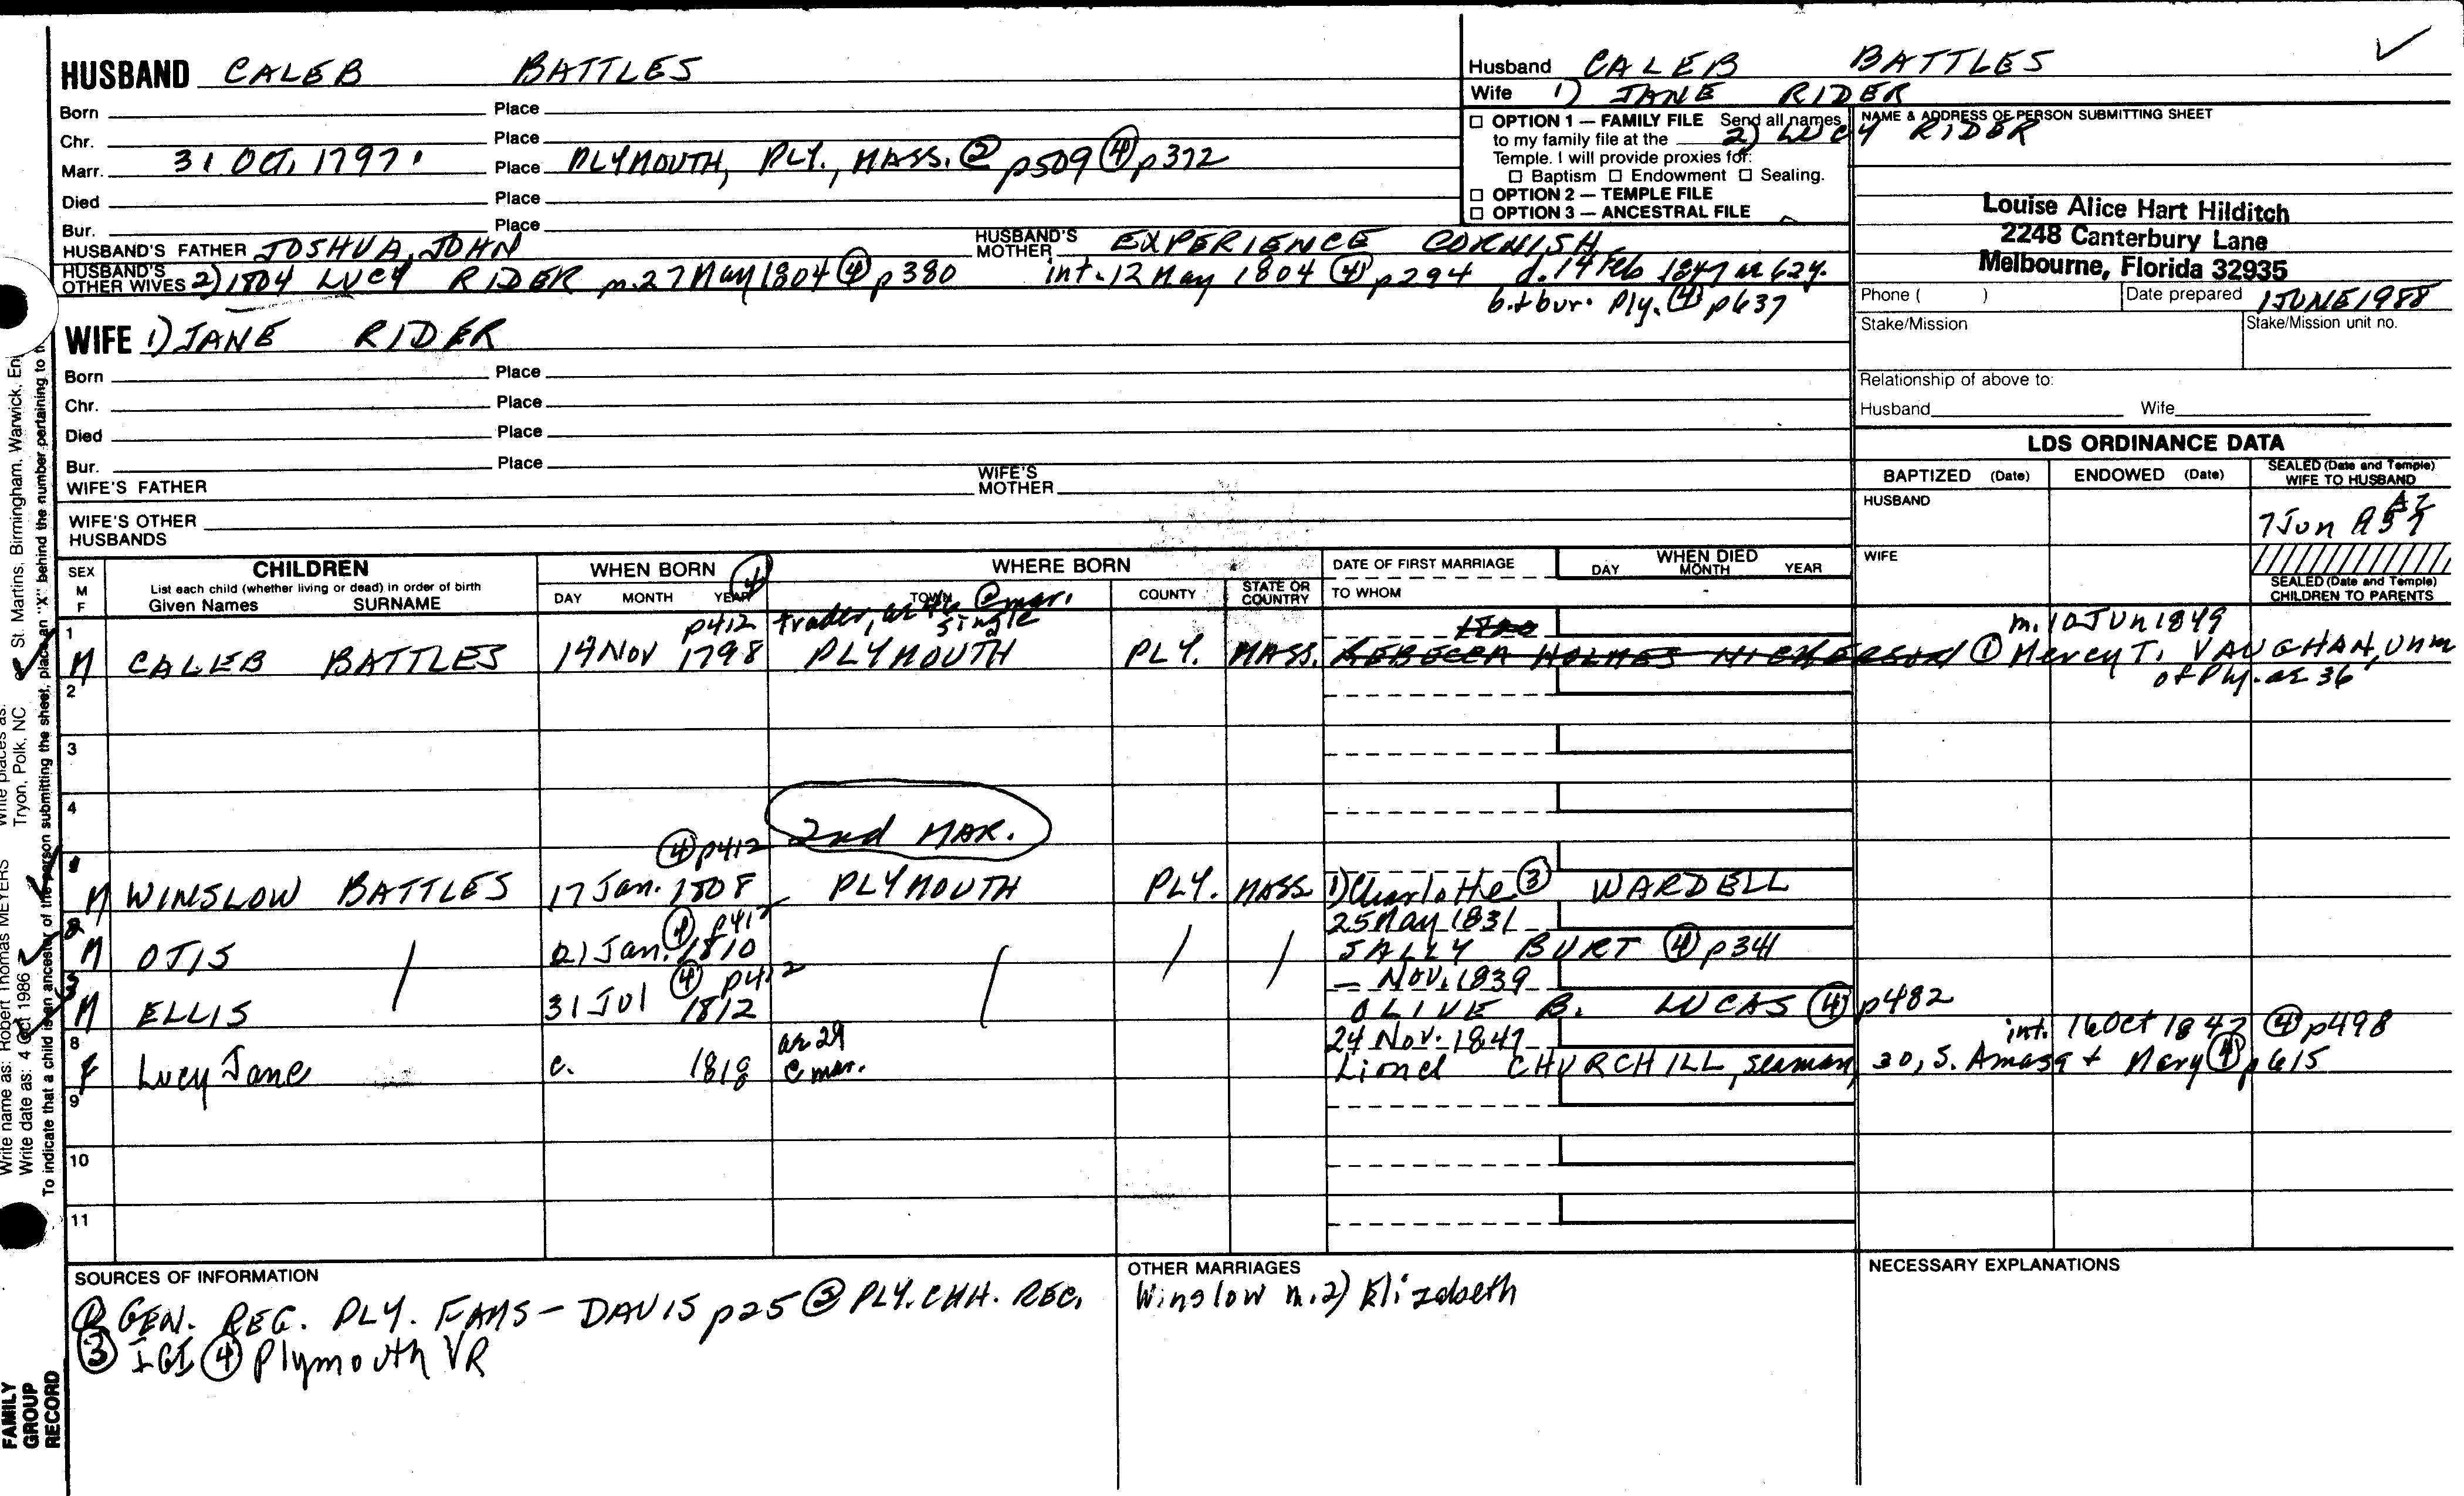 HUSBAND CALEB BATTLES
Born Place
Chr. Place
Marr. 31 OCT. 1797. Place PLYMOUTH, PLY., MASS. ② p509 ④ p372
Died Place
Bur. Place
HUSBAND'S FATHER JOSHUA, JOHN HUSBAND'S MOTHER EXPERIENCE CORNISH
HUSBAND'S OTHER WIVES 2) 1804 LUCY RIDER m. 27 May 1804 ④ p380 int. 12 May 1804 ④ p294 d. 14 Feb 1847 ae 62y.
b. + bur. Ply. ④ p637
WIFE 1) JANE RIDER
Born Place
Chr. Place
Died Place
Bur. Place
WIFE'S FATHER WIFE'S MOTHER
WIFE'S OTHER HUSBANDS
Husband CALEB BATTLES
Wife 1) JANE RIDER
2) LUCY RIDER
□ OPTION 1 — FAMILY FILE Send all names
to my family file at the
Temple. I will provide proxies for:
□ Baptism □ Endowment □ Sealing.
□ OPTION 2 — TEMPLE FILE
□ OPTION 3 — ANCESTRAL FILE
NAME & ADDRESS OF PERSON SUBMITTING SHEET
Louise Alice Hart Hilditch
2248 Canterbury Lane
Melbourne, Florida 32935
Phone ( ) Date prepared 1 JUNE 1988
Stake/Mission Stake/Mission unit no.
Relationship of above to:
Husband Wife
LDS ORDINANCE DATA
BAPTIZED (Date) ENDOWED (Date) SEALED (Date and Temple) WIFE TO HUSBAND
HUSBAND
AZ
7 Jun
WIFE
SEALED (Date and Temple) CHILDREN TO PARENTS
SEX M F
CHILDREN
List each child (whether living or dead) in order of birth
Given Names SURNAME
WHEN BORN ④
DAY MONTH YEAR
WHERE BORN
TOWN COUNTY STATE OR COUNTRY
DATE OF FIRST MARRIAGE
TO WHOM
WHEN DIED
DAY MONTH YEAR
1 p412 trader, ae 46 @ mar. single 1820 m. 10 Jun 1849
M CALEB BATTLES 14 Nov 1798 PLYMOUTH PLY. MASS. REBECCA HOLMES NICKERSON ① Mercy T. VAUGHAN, unm
of Ply. ae 36
2
3
4
2nd MAR.
1 ④ p412
M WINSLOW BATTLES 17 Jan. 1808 PLYMOUTH PLY. MASS 1) Charlotte ③ WARDELL
2 ④ p412 25 May 1831
M OTIS / 21 Jan. 1810 / / / SALLY BURT ④ p341
3 ④ p412 — Nov. 1839
M ELLIS 31 Jul 1812 OLIVE B. LUCAS ④ p482
8 ae 29 24 Nov. 1847 int. 16 Oct 1847 ④ p498
f Lucy Jane c. 1818 @ mar. Lionel CHURCHILL, seaman, 30, S. Amasa + Mary ④ p615
9
10
11
SOURCES OF INFORMATION
① GEN. REG. PLY. FAMS – DAVIS p25 ② PLY. CHH. REC.
③ IGI ④ Plymouth VR
OTHER MARRIAGES
Winslow m. 2) Elizabeth
NECESSARY EXPLANATIONS
Write name as: Robert Thomas MEYERS Write places as: Tryon, Polk, NC or St. Martins, Birmingham, Warwick, En
Write date as: 4 Oct 1986
To indicate that a child is an ancestor of the person submitting the sheet, place an "X" behind the number pertaining to
FAMILY
GROUP
RECORD